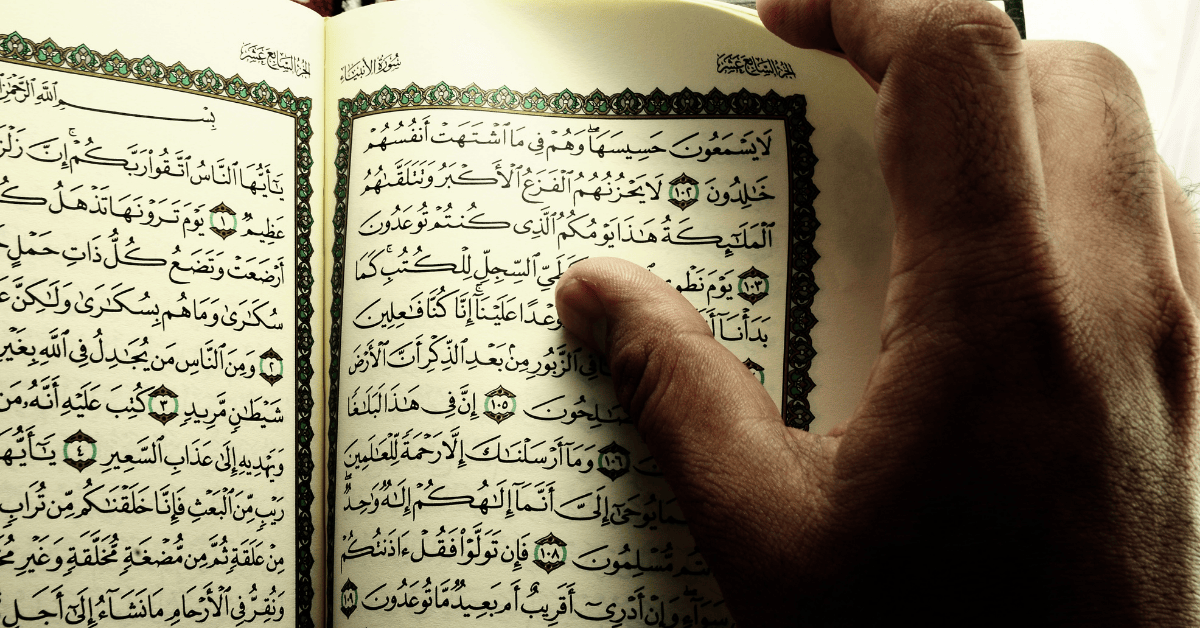 الجزء السابع عشر سُورَةُ الأَنبِيَاء
لَا يَسْمَعُونَ حَسِيسَهَا ۖ وَهُمْ فِي مَا ٱشْتَهَتْ أَنفُسُهُمْ
خَٰلِدُونَ ١٠٢ لَا يَحْزُنُهُمُ ٱلْفَزَعُ ٱلْأَكْبَرُ وَتَتَلَقَّىٰهُمُ
ٱلْمَلَٰٓئِكَةُ هَٰذَا يَوْمُكُمُ ٱلَّذِى كُنتُمْ تُوعَدُونَ
١٠٣ يَوْمَ ٱلسِّجِلِّ لِلْكُتُبِ ۚ كَمَا
بَدَأْنَآ عَلَيْنَآ ۚ إِنَّا كُنَّا فَٰعِلِينَ
فِى ٱلزَّبُورِ مِنۢ بَعْدِ ٱلذِّكْرِ أَنَّ ٱلْأَرْضَ
١٠٥ إِنَّ فِى هَٰذَا لَبَلَٰغًا
١٠٦ وَمَآ أَرْسَلْنَٰكَ إِلَّا رَحْمَةً لِّلْعَٰلَمِينَ
يُوحَىٰٓ إِلَىَّ أَنَّمَآ إِلَٰهُكُمْ إِلَٰهٌ وَٰحِدٌ ۖ
مُّسْلِمُونَ ١٠٨ فَإِن تَوَلَّوْا۟ فَقُلْ ءَاذَنتُكُمْ
سَوَآءٍ ۖ وَإِنْ أَدْرِىٓ أَقَرِيبٌ أَم بَعِيدٌ مَّا تُوعَدُونَ ١٠٩
الجزء السابع عشر
بِسْمِ ٱللَّهِ
يَٰٓأَيُّهَا ٱلنَّاسُ ٱتَّقُوا۟ رَبَّكُمْ ۚ إِنَّ
عَظِيمٌ ١ يَوْمَ تَرَوْنَهَا تَذْهَلُ
أَرْضَعَتْ وَتَضَعُ كُلُّ ذَاتِ حَمْلٍ
سُكَٰرَىٰ وَمَا هُم بِسُكَٰرَىٰ وَلَٰكِنَّ
٢ وَمِنَ ٱلنَّاسِ مَن يُجَٰدِلُ فِى ٱللَّهِ بِغَيْرِ
شَيْطَٰنٍ مَّرِيدٍ ٣ كُتِبَ عَلَيْهِ أَنَّهُۥ مَن
وَيَهْدِيهِ إِلَىٰ عَذَابِ ٱلسَّعِيرِ ٤
رَيْبٍ مِّنَ ٱلْبَعْثِ فَإِنَّا خَلَقْنَٰكُم مِّن تُرَابٍ
مِنْ عَلَقَةٍ ثُمَّ مِن مُّضْغَةٍ مُّخَلَّقَةٍ وَغَيْرِ
وَنُقِرُّ فِى ٱلْأَرْحَامِ مَا نَشَآءُ إِلَىٰٓ أَجَلٍ